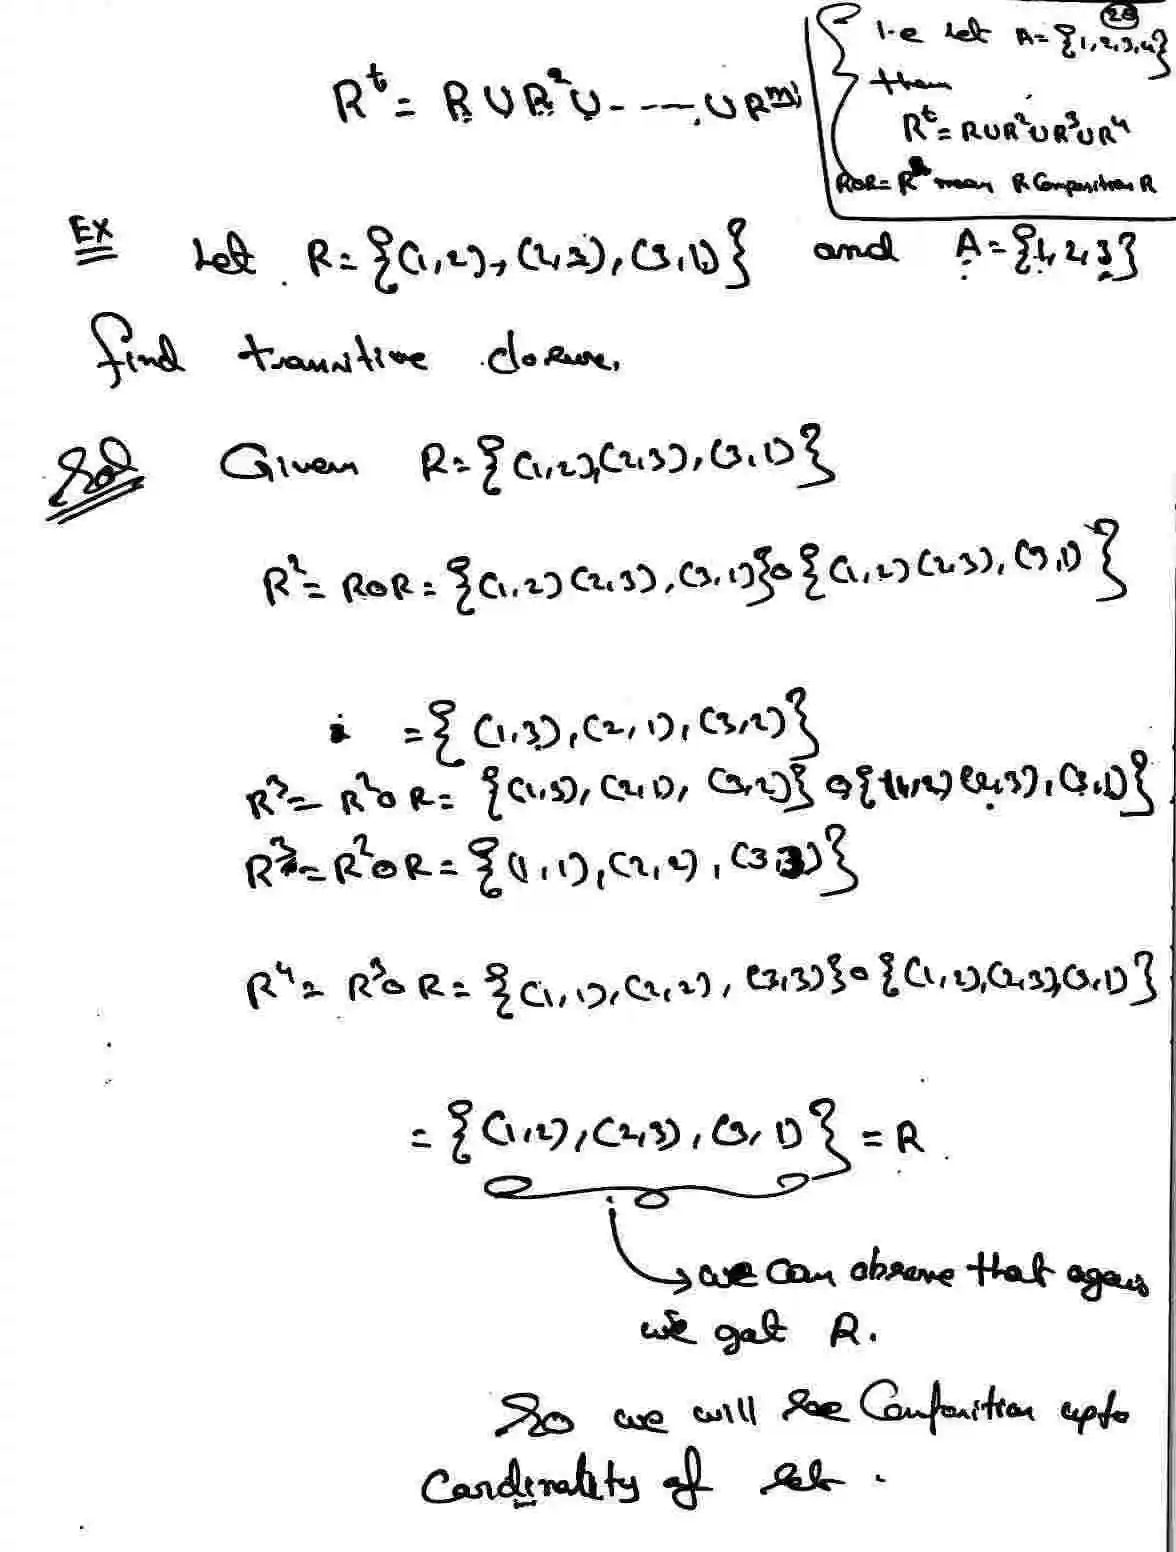 (20)
i-e let A={1,2,3,4}
then
R^t = R∪R²∪R³∪R⁴
ROR=R² mean R Composition R
R^t = R ∪ R² ∪ - ---- ∪ R^m
Ex Let R={(1,2), (2,3), (3,1)} and A={1,2,3}
find transitive closure.
Sol Given R={(1,2),(2,3),(3,1)}
R²= ROR={(1,2)(2,3),(3,1)}o{(1,2)(2,3),(3,1)}
={(1,3),(2,1),(3,2)}
R³= R²oR= {(1,3),(2,1),(3,2)}o{(1,2)(2,3),(3,1)}
R³=R²oR={(1,1),(2,2),(3,3)}
R⁴= R³oR={(1,1),(2,2),(3,3)}o{(1,2),(2,3),(3,1)}
={(1,2),(2,3),(3,1)}=R
→ we can observe that again
we get R.
So we will see Composition upto
Cardinality of set.